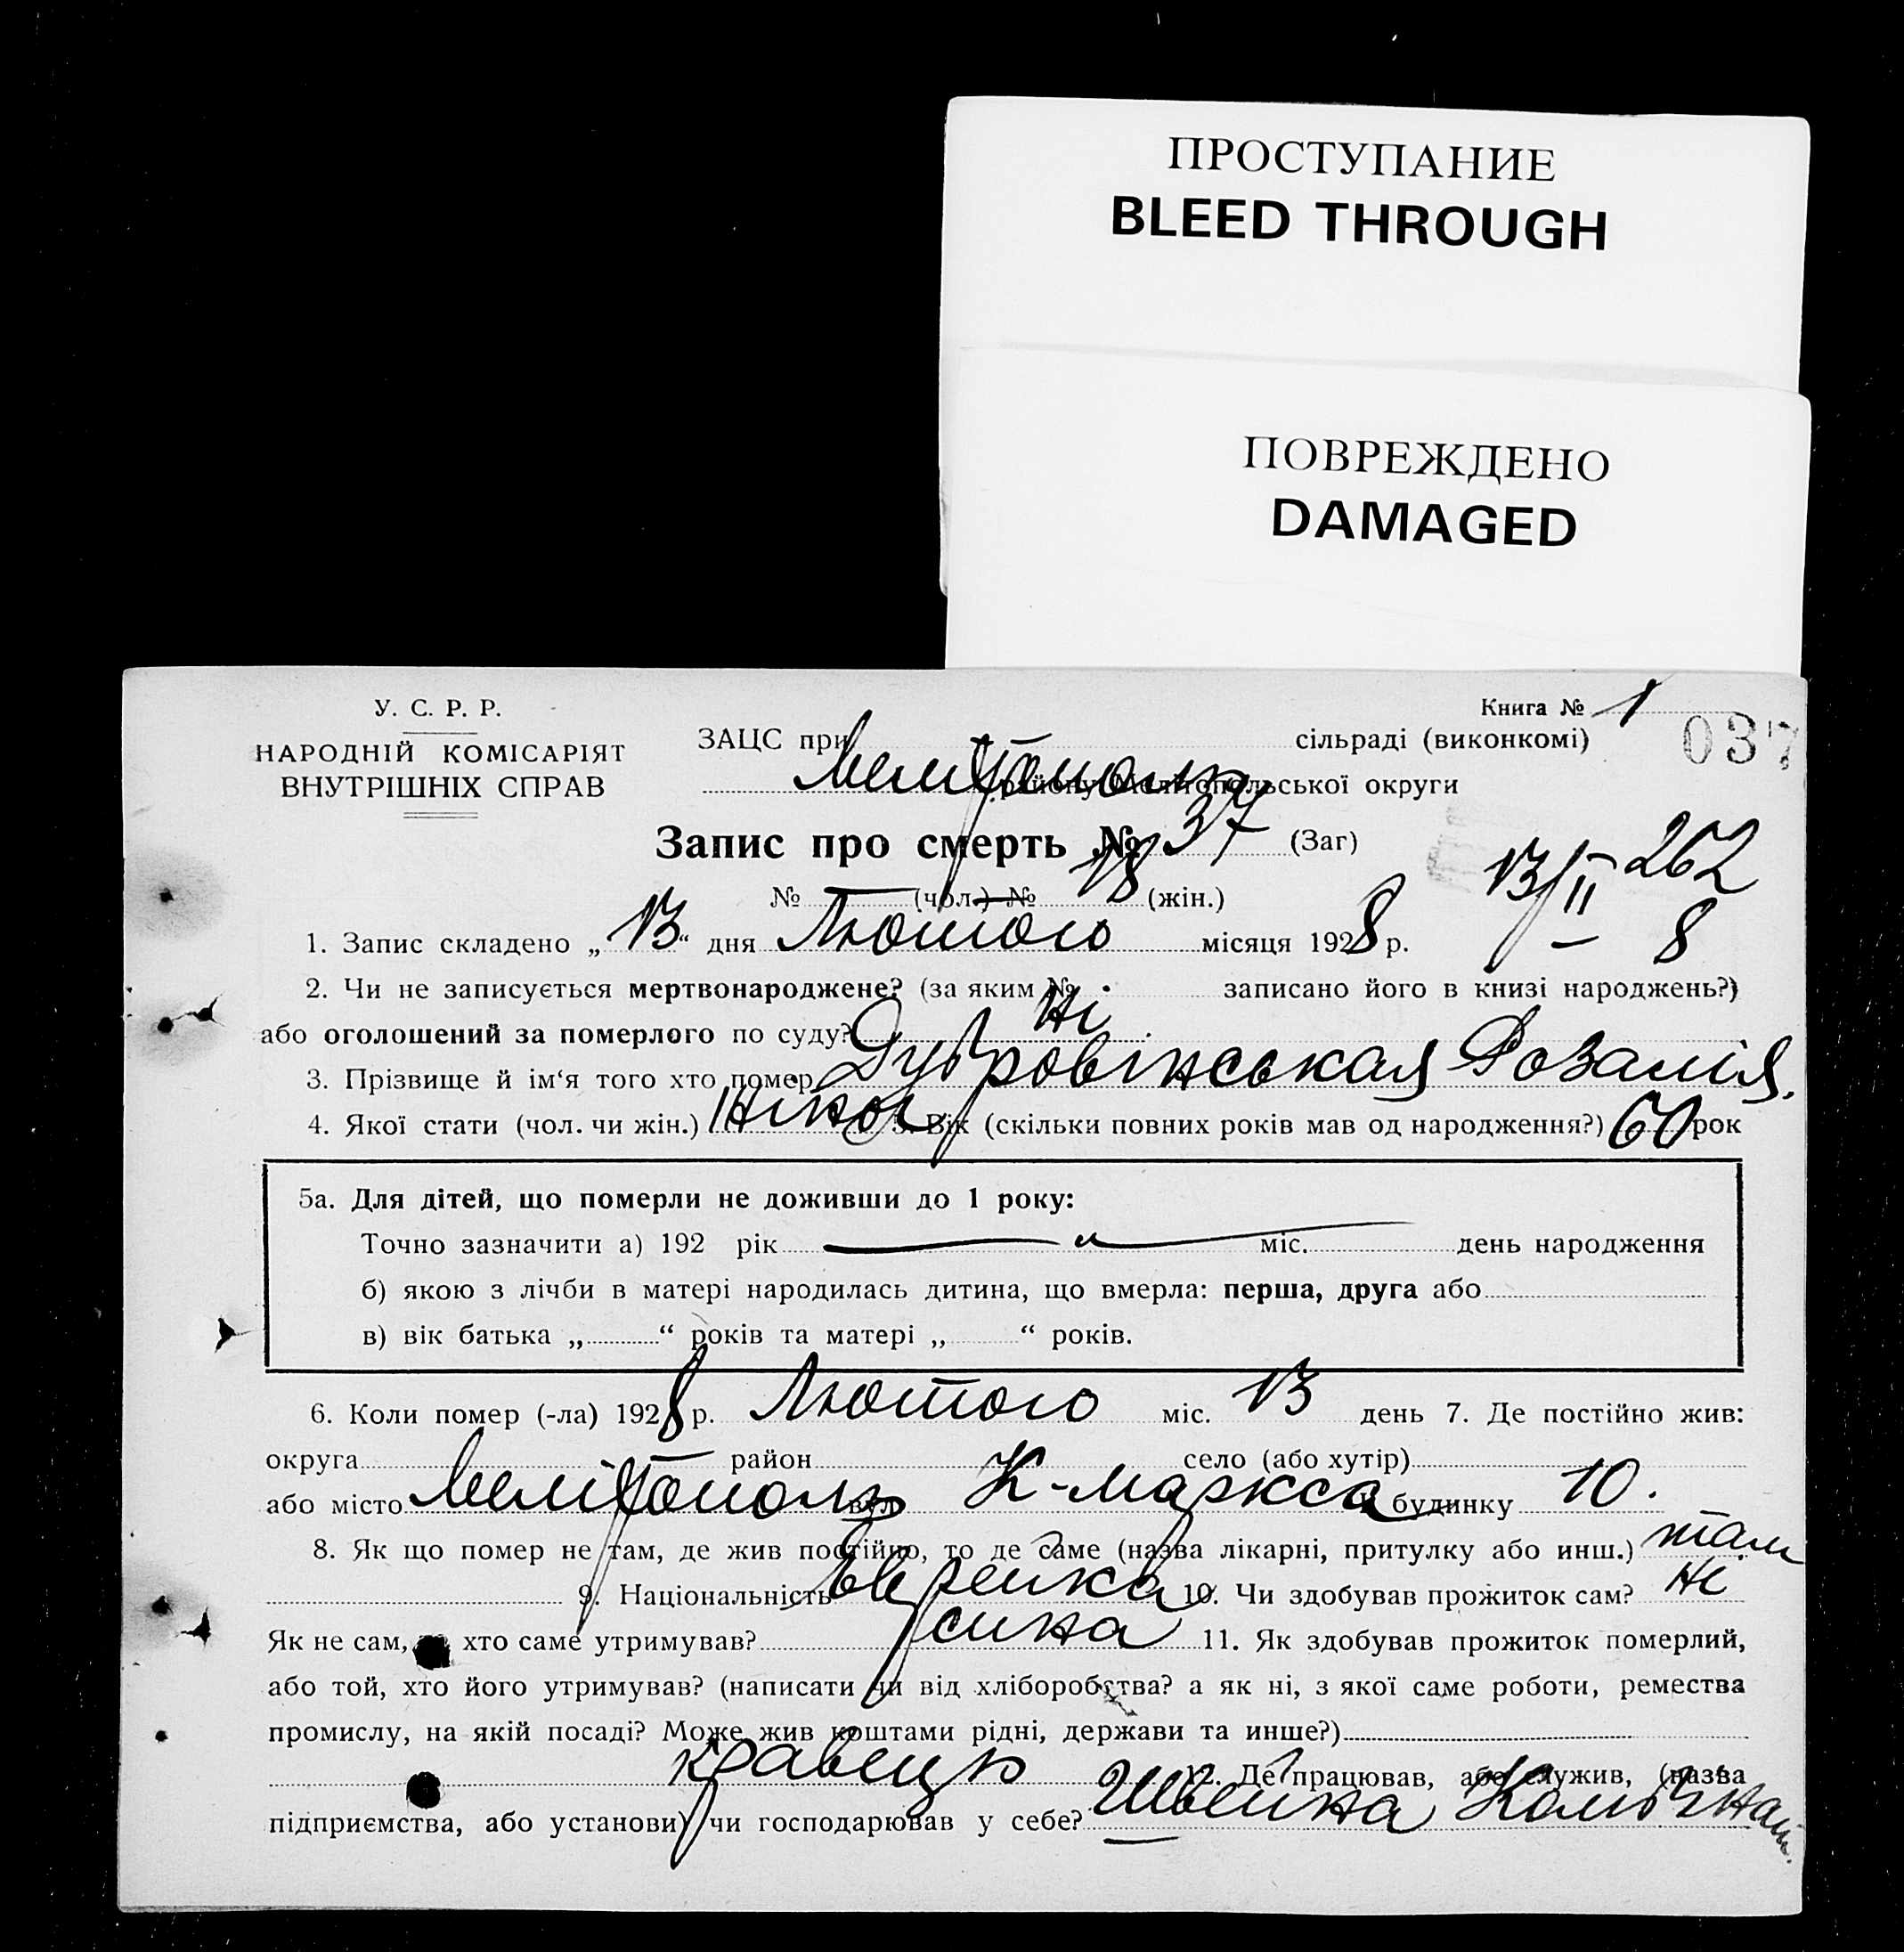 ПРОСТУПАНИЕ
BLEED THROUGH
ПОВРЕЖДЕНО
DAMAGED
У. С. Р. Р.
НАРОДНІЙ КОМІСАРІЯТ
ВНУТРІШНІХ СПРАВ
Книга № 1
037
ЗАЦС при сільраді (виконкомі)
Мелітополь району Мелітопольської округи
Запис про смерть № 37 (Заг)
№ (чол.) № 18 (жін.)
13/II 262
8
1. Запис складено „13“ дня Лютого місяця 1928 р.
2. Чи не записується мертвонароджене? (за яким № записано його в книзі народжень?)
або оголошений за померлого по суду? Ні
3. Прізвище й ім‘я того хто помер Дубровінськая Розалія.
4. Якої стати (чол. чи жін.) Жіноч 5. Вік (скільки повних років мав од народження?) 60 рок
5а. Для дітей, що померли не доживши до 1 року:
Точно зазначити а) 192 рік міс. день народження
б) якою з лічби в матері народилась дитина, що вмерла: перша, друга або
в) вік батька „ “ років та матері „ “ років.
6. Коли помер (-ла) 1928 р. Лютого міс. 13 день 7. Де постійно жив:
округа район село (або хутір)
або місто Мелітополь вул. К-Маркса будинку 10.
8. Як що помер не там, де жив постійно, то де саме (назва лікарні, притулку або инш.) там
9. Національність Еврейка 10. Чи здобував прожиток сам? Ні
Як не сам, хто саме утримував? сина 11. Як здобував прожиток померлий,
або той, хто його утримував? (написати чи від хліборобства? а як ні, з якої саме роботи, ремества
промислу, на якій посаді? Може жив коштами рідні, держави та инше?)
кравець 12. Де працював, або служив, (назва
підприємства, або установи) чи господарював у себе? Швейна